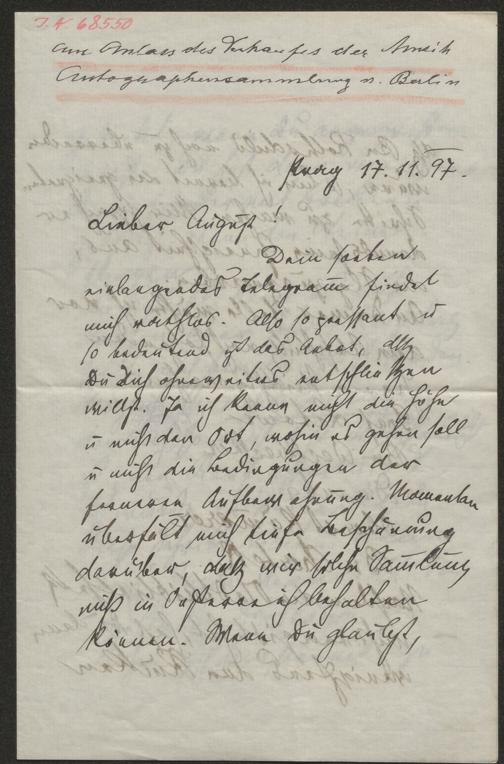 I.N. 68550
aus Anlass des Verkaufes der
Autographensammlung n. Berlin
Prag 17.11.97.
Lieber August!
Dein soeben
einlangendes Telegramm findet
mich rathlos. Also so u
so bedeutend ist das Anbot, dß
Du Dich ohneweiters entschließen
willst. Ja ich kenne nicht die Höhe
u nicht den Ort, wohin es gehen soll
u nicht die Bedingungen der
ferneren Aufbewahrung. Momentan
überfällt mich tiefe Beschämung
darüber, daß wir solche Samlung
nicht in Oesterreich behalten
können. Wenn Du glaubst,